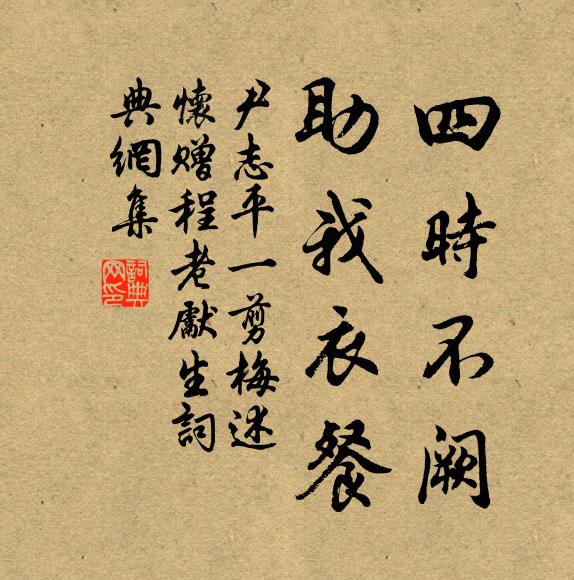 四時不闕
助我衣餐
尹志平一剪梅述
懷贈程老獻生詞
典網集
詞典
网印